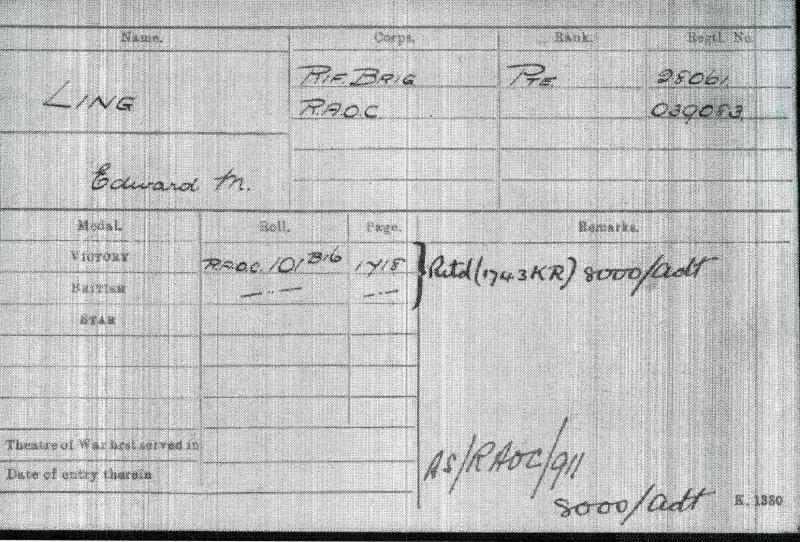 Name. Corps. Rank. Regtl. No.
LING RIF. BRIG PTE. 28061
R.A.O.C. 039083
Edward M.
Medal. Roll. Page. Remarks.
VICTORY R.A.O.C. 101 B16 1718 } Retd (1743 KR) 8000/adt
BRITISH —·— —·—
STAR
Theatre of War first served in
Date of entry therein
AS/RAOC/911
8000/adt K. 1380